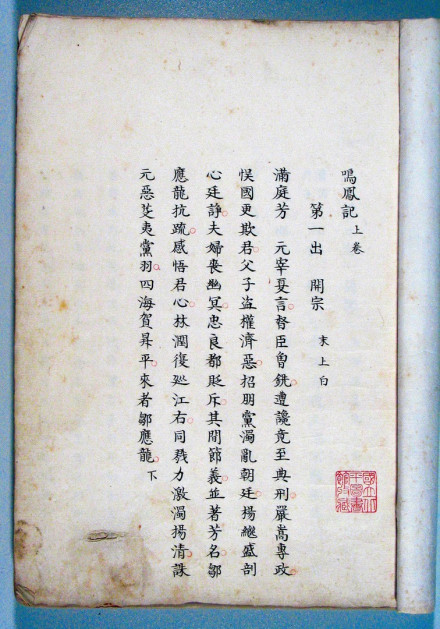 鳴鳳記 上卷
第一出 開宗 末上白
滿庭芳 元宰夏言督臣曽銑遭讒竟至典刑嚴嵩專政
悞國更欺君父子盗權濟惡招朋黨濁亂朝廷楊継盛剖
心廷諍夫婦喪幽冥忠良都貶斥其間節義並著芳名鄒
應龍抗疏感悟君心林潤復廵江右同戮力激濁揚清誅
元惡芟夷黨羽四海賀昇平來者鄒應龍 下